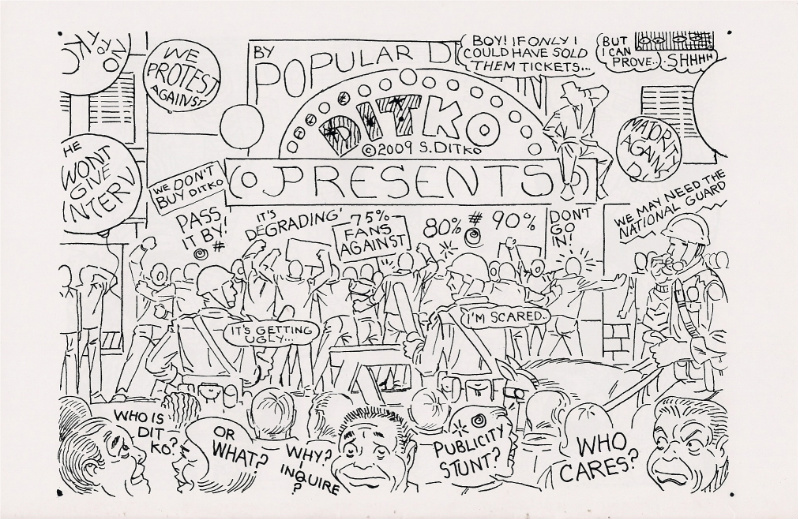 WE
PROTEST
AGAINST
BY
POPULAR D
BOY! IF ONLY I
COULD HAVE SOLD
THEM TICKETS...
BUT
I CAN
PROVE..
SHHHH
DITKO
©2009 S.DITKO
PRESENTS
MAJORI
AGAIN
HE
WONT
GIVE
INTERV
WE DON'T
BUY DITKO
PASS
IT BY!
#
IT'S
DEGRADING'
75%
FANS
AGAINST
80% # 90%
DON'T
GO
IN!
WE MAY NEED THE
NATIONAL GUARD
IT'S GETTING
UGLY...
I'M SCARED.
WHO IS
DIT
KO?
OR
WHAT?
WHY?
I
INQUIRE
?
PUBLICITY
STUNT?
WHO
CARES?